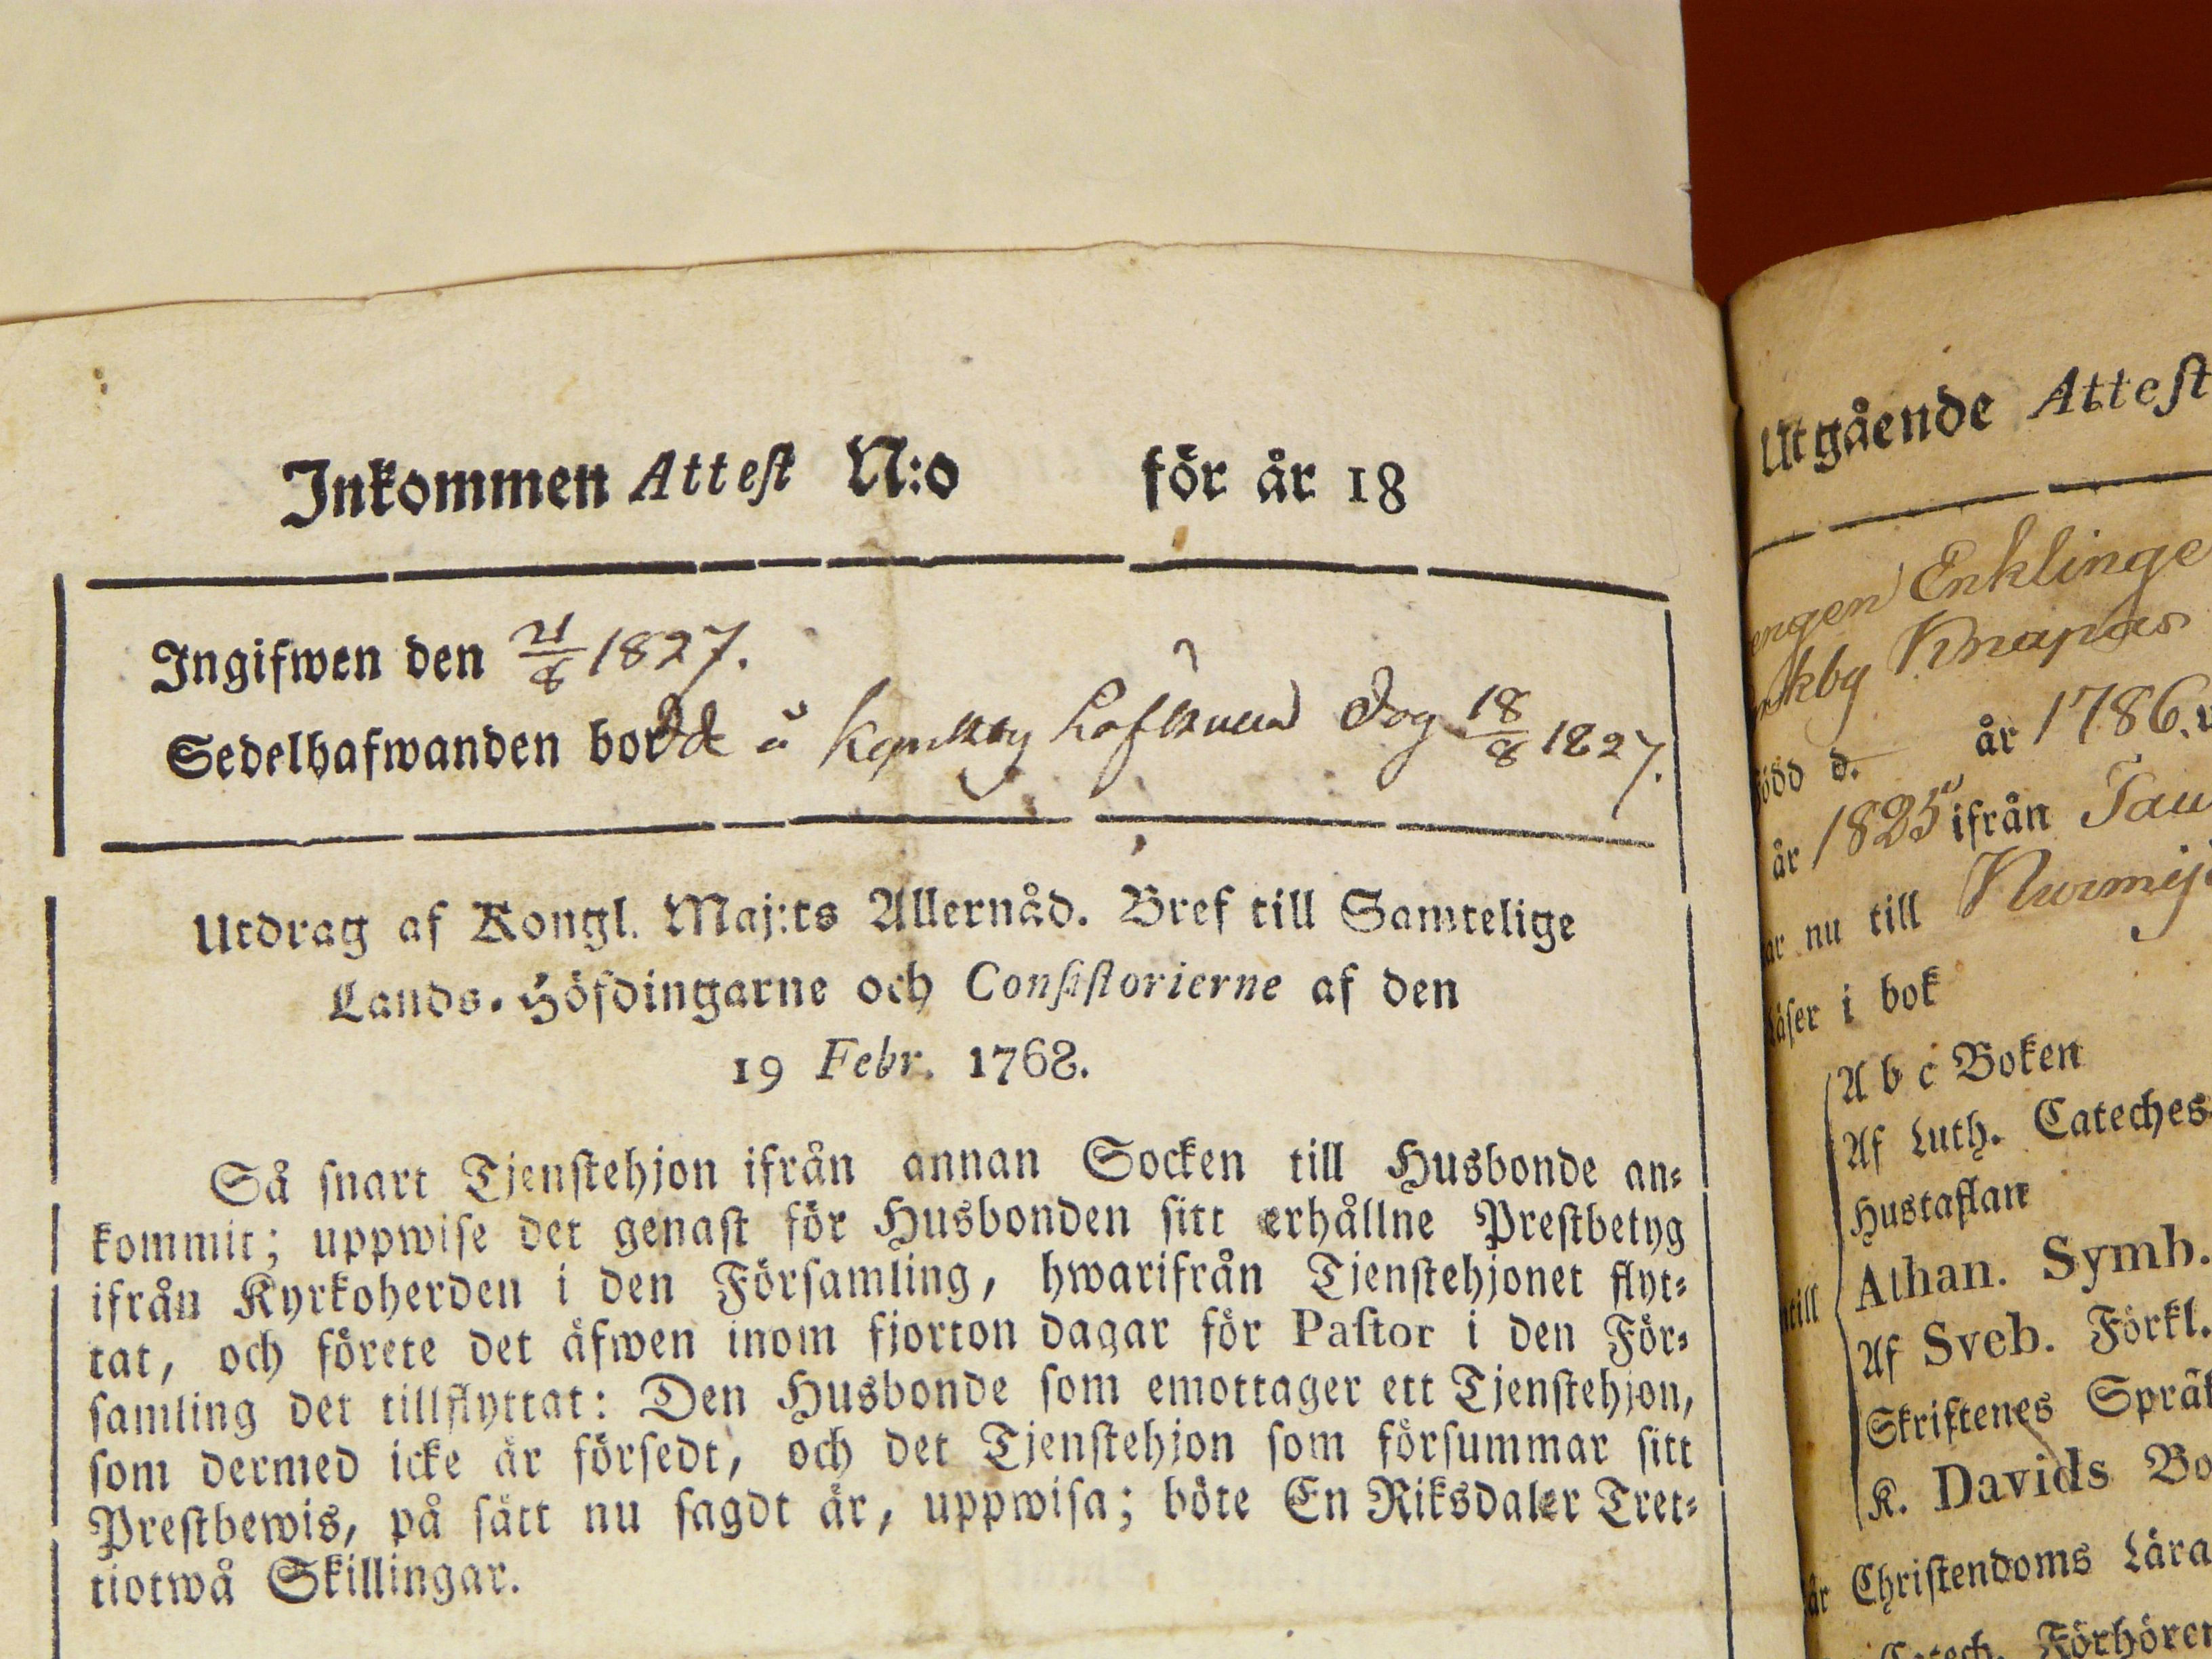 Inkommen Attest N:o för år 18
Ingifwen den 21/8 1827.
Sedelhafwanden bodde å dog 18/8 1827.
Utdrag af Kongl. Maj:ts Allernåd. Bref till Samtelige
Lands-Höfdingarne och Consistorierne af den
19 Febr. 1768.
Så snart Tjenstehjon ifrån annan Socken till Husbonde an-
kommit; uppwise det genast för Husbonden sitt erhållne Prestbetyg
ifrån Kyrkoherden i den Församling, hwarifrån Tjenstehjonet flyt-
tat, och förete det äfwen inom fjorton dagar för Pastor i den För-
samling det tillflyttat: Den Husbonde som emottager ett Tjenstehjon,
som dermed icke är försedt, och det Tjenstehjon som försummar sitt
Prestbewis, på sätt nu sagdt är, uppwisa; böte En Riksdaler Tret-
tiotwå Skillingar.
Utgående Attest
engen Enklinge
kby Knapas
född d. år 1786.
år 1825 ifrån Tau
ar nu till Nurmij
Läser i bok
A b c Boken
Af Luth. Cateches
Hustaflan
Athan. Symb.
till
Af Sveb. Förkl.
Skriftenes Språk
K. Davids Bo
är Christendoms Lära
Catech. Förhörer